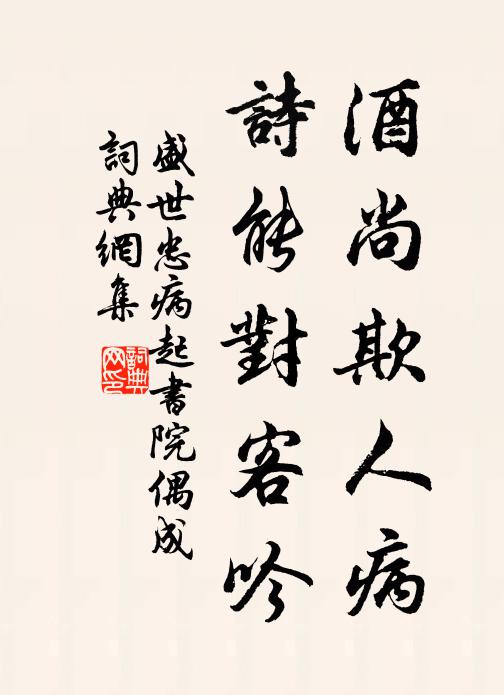 酒尚欺人病
詩能對客吟
盛世忠病起書院偶成
詞典網集
詞典网印